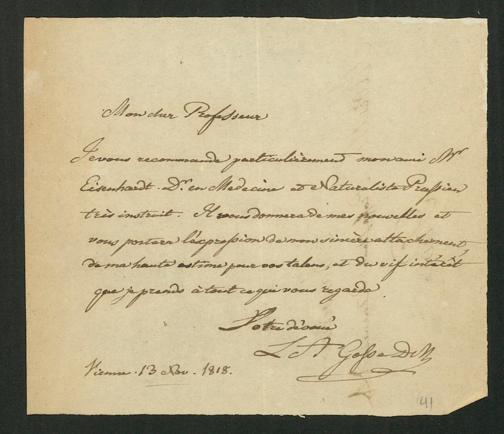 Mon cher Professeur
Je vous recommande particulièrement mon ami Mr
Eisenhardt Dr. en Medecine et Naturaliste Prussien
très instruit. Il vous donnera de mes nouvelles et
vous portera l'expression de mon sincère attachement,
de ma haute estime pour vos talens, et du vif intérêt
que je prends à tout ce qui vous regarde
Votre dévoué
L A Gosse DM
Vienne 13 Nov. 1818.
41